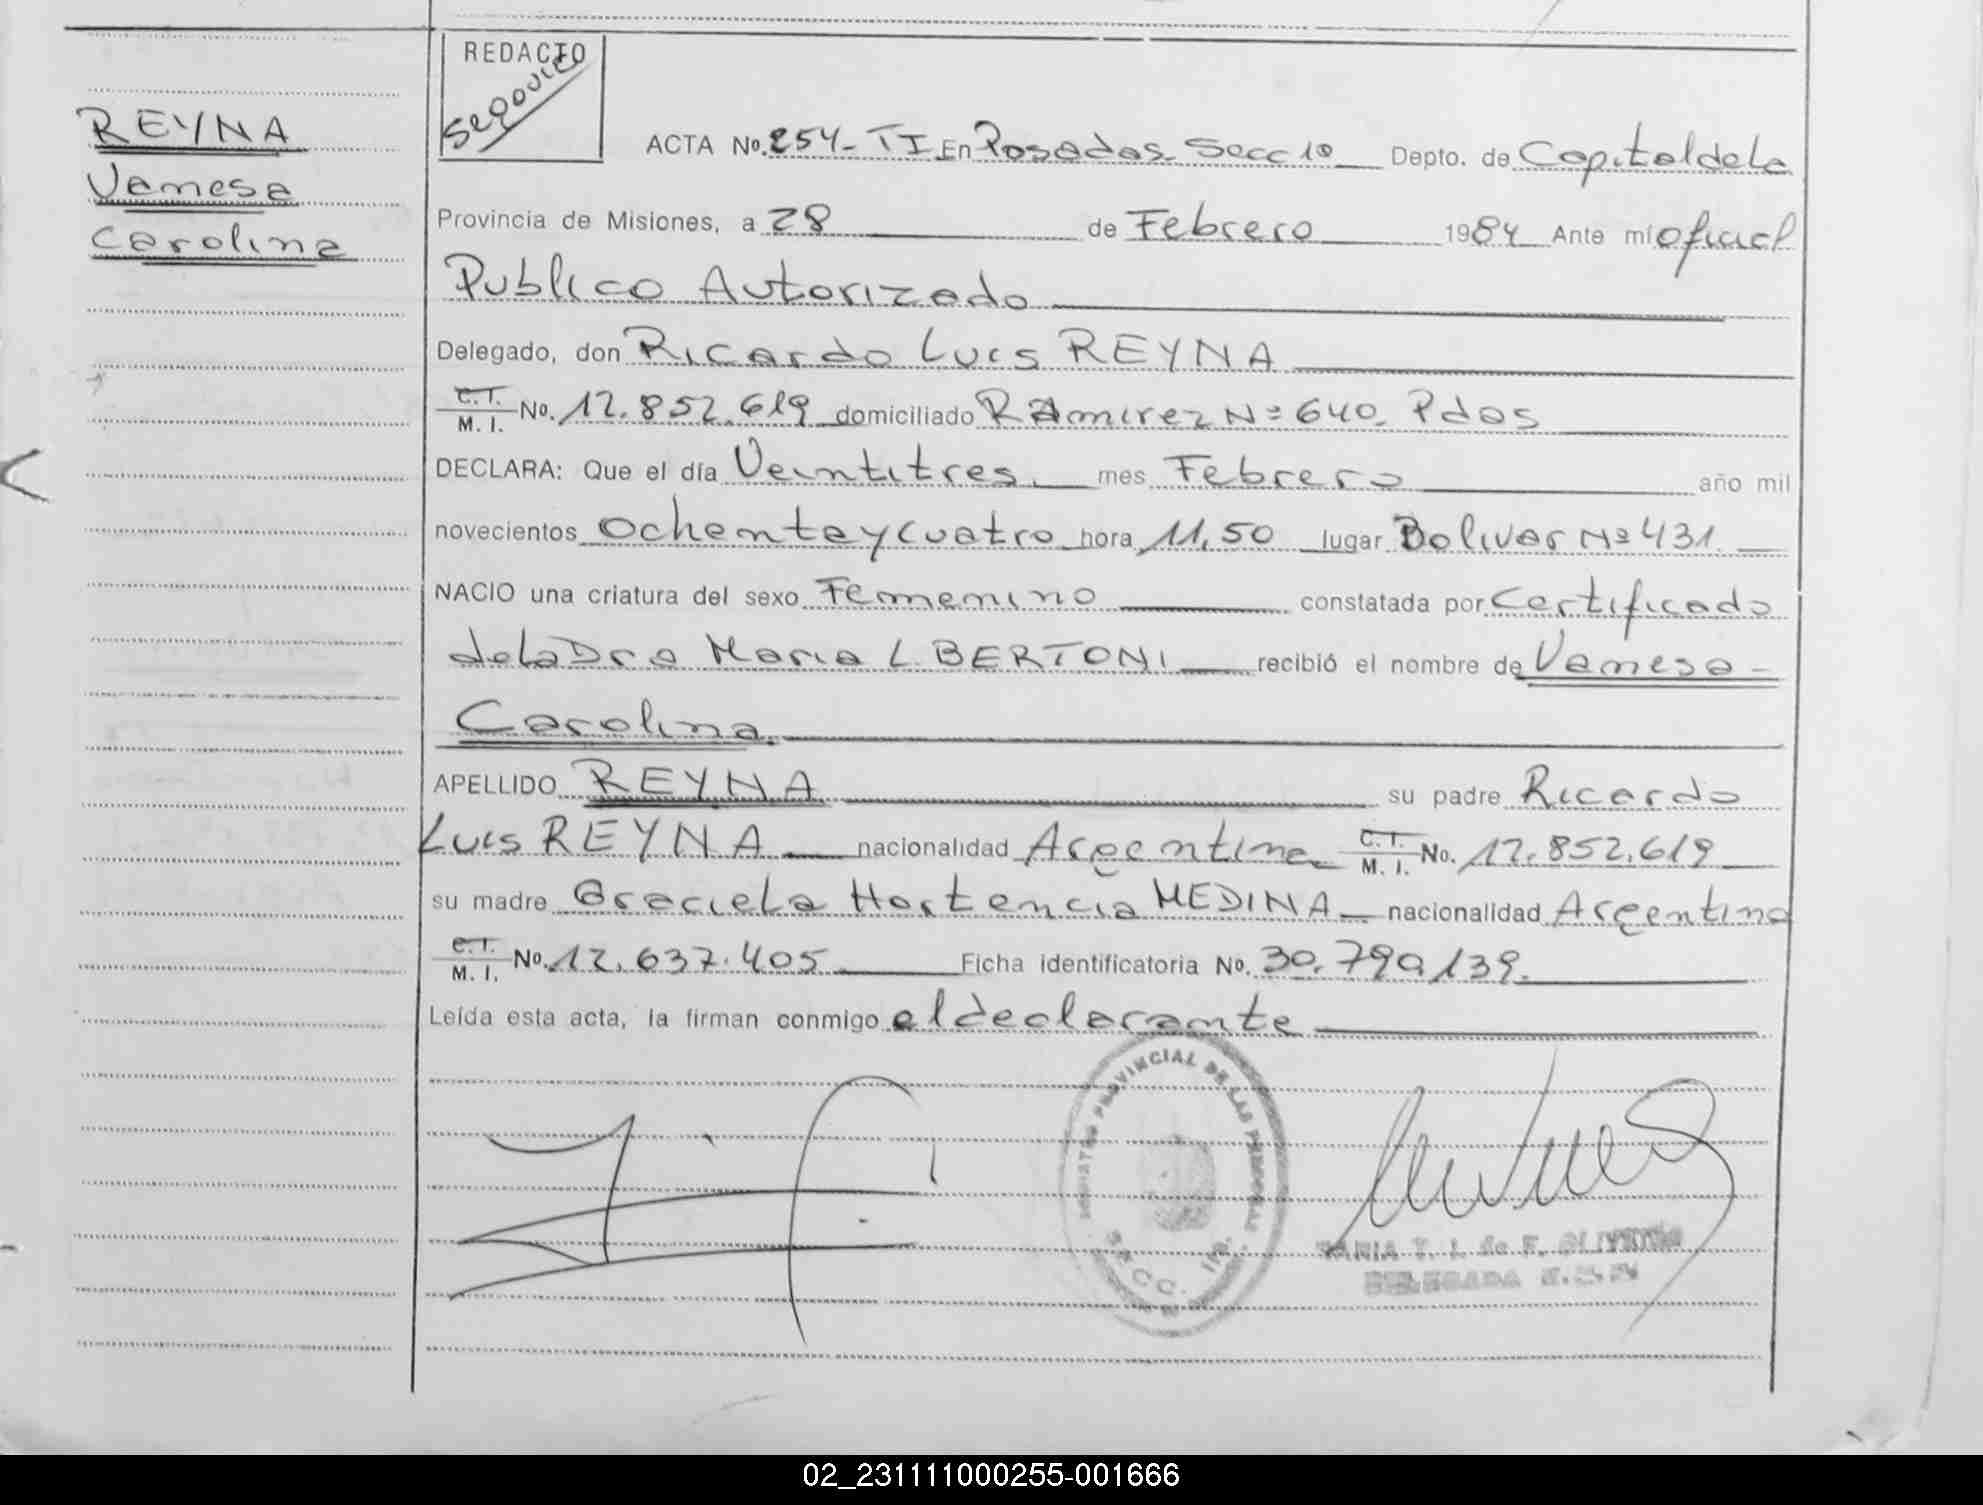 REDACTO
Segovia
REYNA
Vanesa
Carolina
ACTA No. 254 - TI En Posadas Secc 1º Depto. de Capital de la
Provincia de Misiones, a 28 de Febrero 1984 Ante mí oficial
Publico Autorizado
Delegado, don Ricardo Luis REYNA
C.I. M. I. No. 12.852.619 domiciliado RAmirez Nº 640. Pdas
DECLARA: Que el día Veintitres. mes Febrero año mil
novecientos Ochenta y Cuatro hora 11,50 lugar Bolivar Nº 431.
NACIO una criatura del sexo Femenino constatada por Certificado
de la Dra Maria L. BERTONI recibió el nombre de Vanesa -
Carolina.
APELLIDO REYNA su padre Ricardo
Luis REYNA nacionalidad Argentina C.I. M. I. No. 12.852.619
su madre Graciela Hortencia MEDINA nacionalidad Argentina
C.I. M. I. No. 12.637.405 Ficha identificatoria No. 30.790.139.
Leída esta acta, la firman conmigo el declarante
PROVINCIAL DE LAS PERSONAS
SECC. 1ra.
MARIA T. I. de F. OLIVEIRA
DELEGADA
02_231111000255-001666